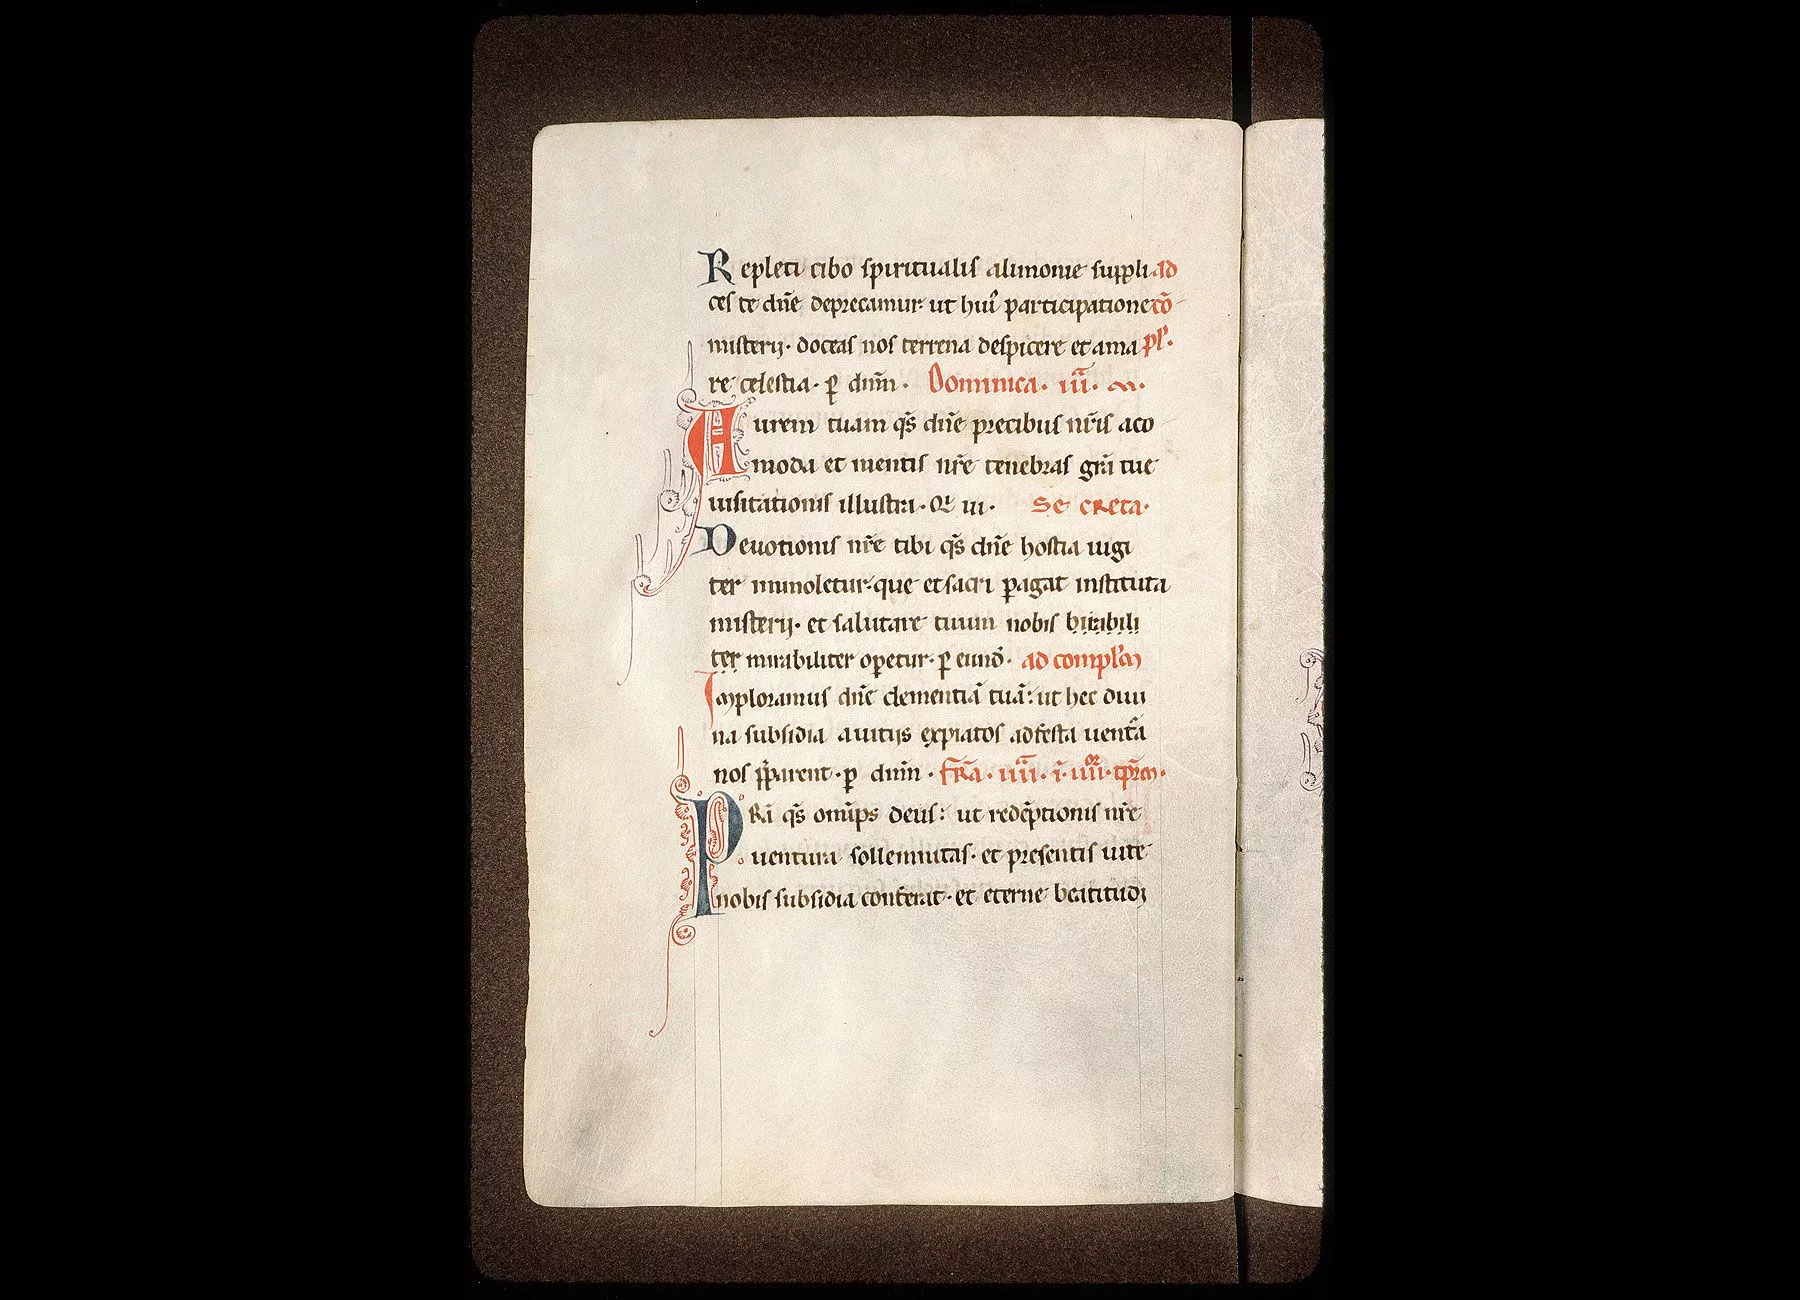 Repleti cibo spiritualis alimonie suppli ad
ces te dn̄e deprecamur· ut huiꝰ participatione cō
misterij· doceas nos terrena despicere et ama pl'·
re celestia· ꝑ dnm̄· Dominica· iiiᷓ· 
Aurem tuam qs̄ dn̄e precibus nr̄is aco
moda et mentis nr̄e tenebras grā tue
uisitationis illustra· Qi ui· Secreta·
Deuotionis nr̄e tibi qs̄ dn̄e hostia iugi
ter immoletur· que et sacri ꝑagat instituta
misterij· et salutare tuum nobis
ter mirabiliter oꝑetur· ꝑ eund̄· ad compl'
Imploramus dn̄e clementiā tuā: ut hec diui
na subsidia a uitijs expiatos ad festa uentā
nos p̄parent· ꝑ dnm̄· fr̄ia· iiiiᷓ· i· iiii
Pr̄a qs̄ omīps deus: ut redēptionis nr̄e
uentura sollemnitas· et presentis uite
nobis subsidia conferat· et eterne beatitudi